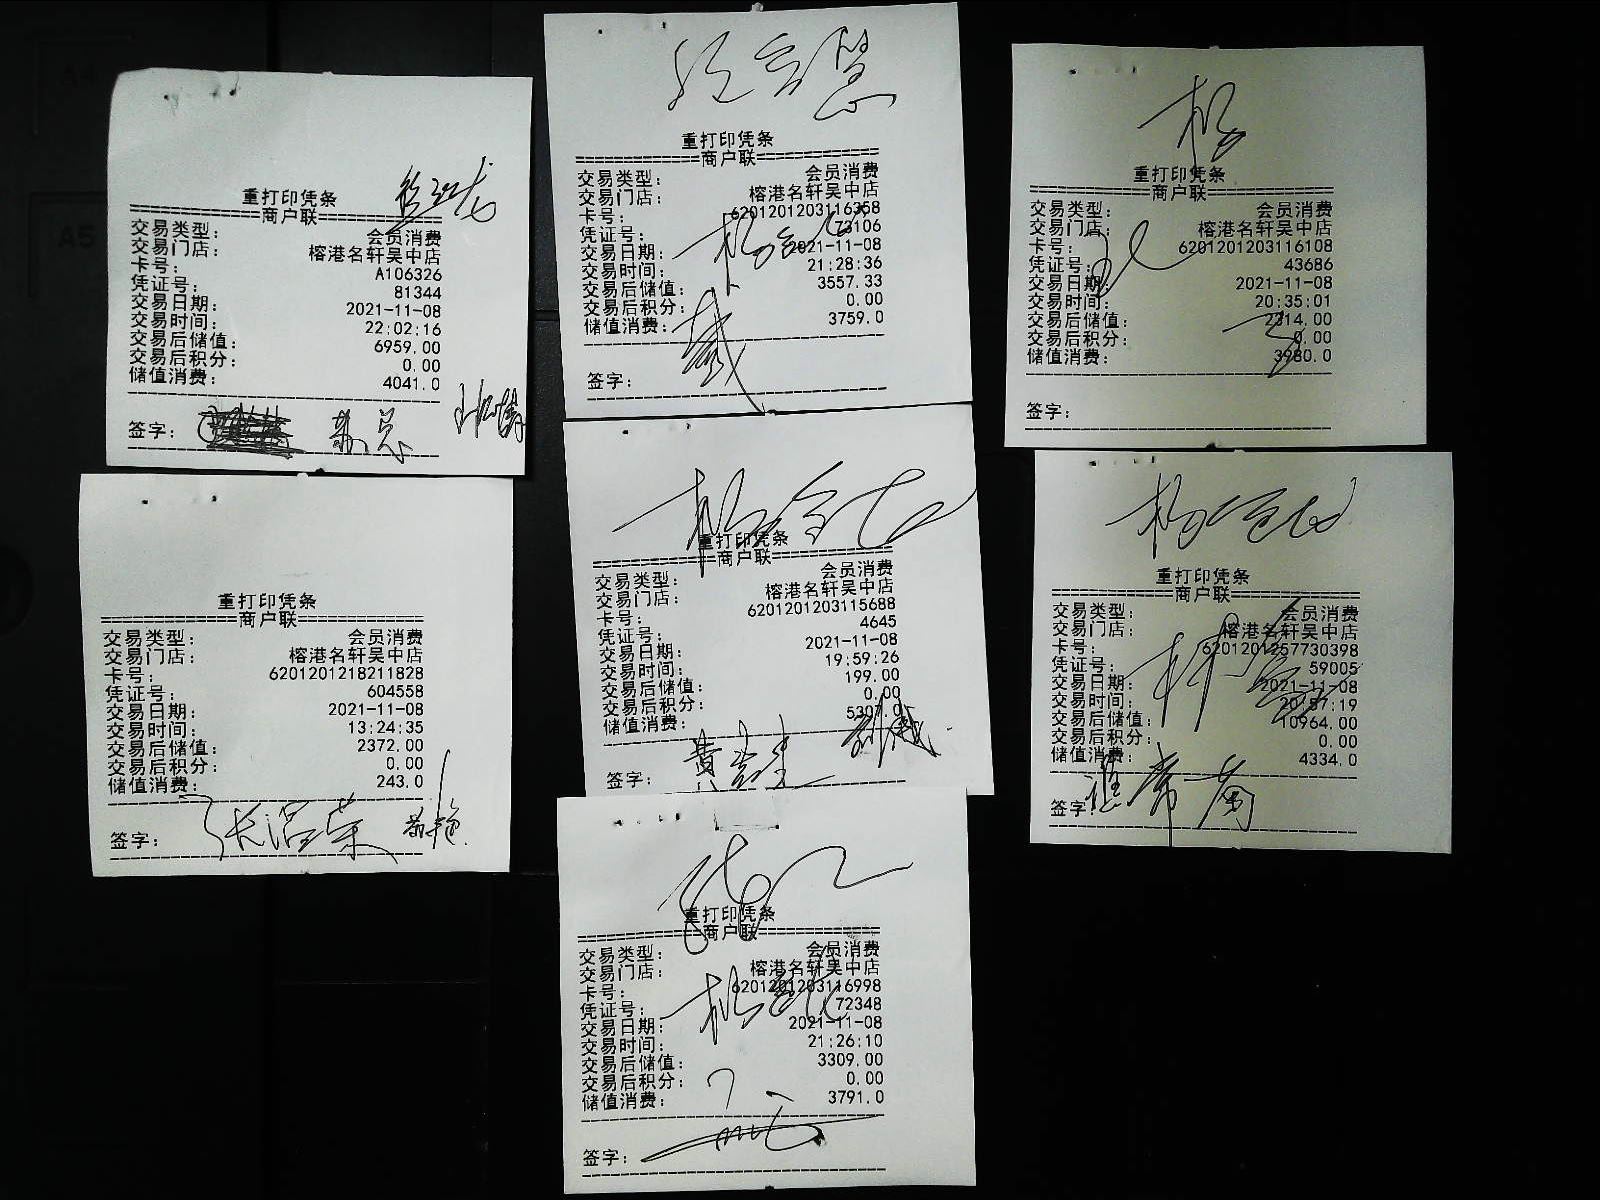 重打印凭条
商户联
交易类型: 会员消费
交易门店: 榕港名轩吴中店
卡号: A106326
凭证号: 81344
交易日期: 2021-11-08
交易时间: 22:02:16
交易后储值: 6959.00
交易后积分: 0.00
储值消费: 4041.0
签字:
重打印凭条
商户联
交易类型: 会员消费
交易门店: 榕港名轩吴中店
卡号: 6201201203116358
凭证号: 73106
交易日期: 2021-11-08
交易时间: 21:28:36
交易后储值: 3557.33
交易后积分: 0.00
储值消费: 3759.0
签字:
杨
重打印凭条
商户联
交易类型: 会员消费
交易门店: 榕港名轩吴中店
卡号: 6201201203116108
凭证号: 43686
交易日期: 2021-11-08
交易时间: 20:35:01
交易后储值: 2314.00
交易后积分: 0.00
储值消费: 3980.0
签字:
重打印凭条
商户联
交易类型: 会员消费
交易门店: 榕港名轩吴中店
卡号: 6201201218211828
凭证号: 604558
交易日期: 2021-11-08
交易时间: 13:24:35
交易后储值: 2372.00
交易后积分: 0.00
储值消费: 243.0
签字:
重打印凭条
商户联
交易类型: 会员消费
交易门店: 榕港名轩吴中店
卡号: 6201201203115688
凭证号: 4645
交易日期: 2021-11-08
交易时间: 19:59:26
交易后储值: 199.00
交易后积分: 0.00
储值消费: 5307.0
签字:
重打印凭条
商户联
交易类型: 会员消费
交易门店: 榕港名轩吴中店
卡号: 6201201257730398
凭证号: 59005
交易日期: 2021-11-08
交易时间: 20:57:19
交易后储值: 10964.00
交易后积分: 0.00
储值消费: 4334.0
签字
重打印凭条
商户联
交易类型: 会员消费
交易门店: 榕港名轩吴中店
卡号: 6201201203116998
凭证号: 72348
交易日期: 2021-11-08
交易时间: 21:26:10
交易后储值: 3309.00
交易后积分: 0.00
储值消费: 3791.0
签字: